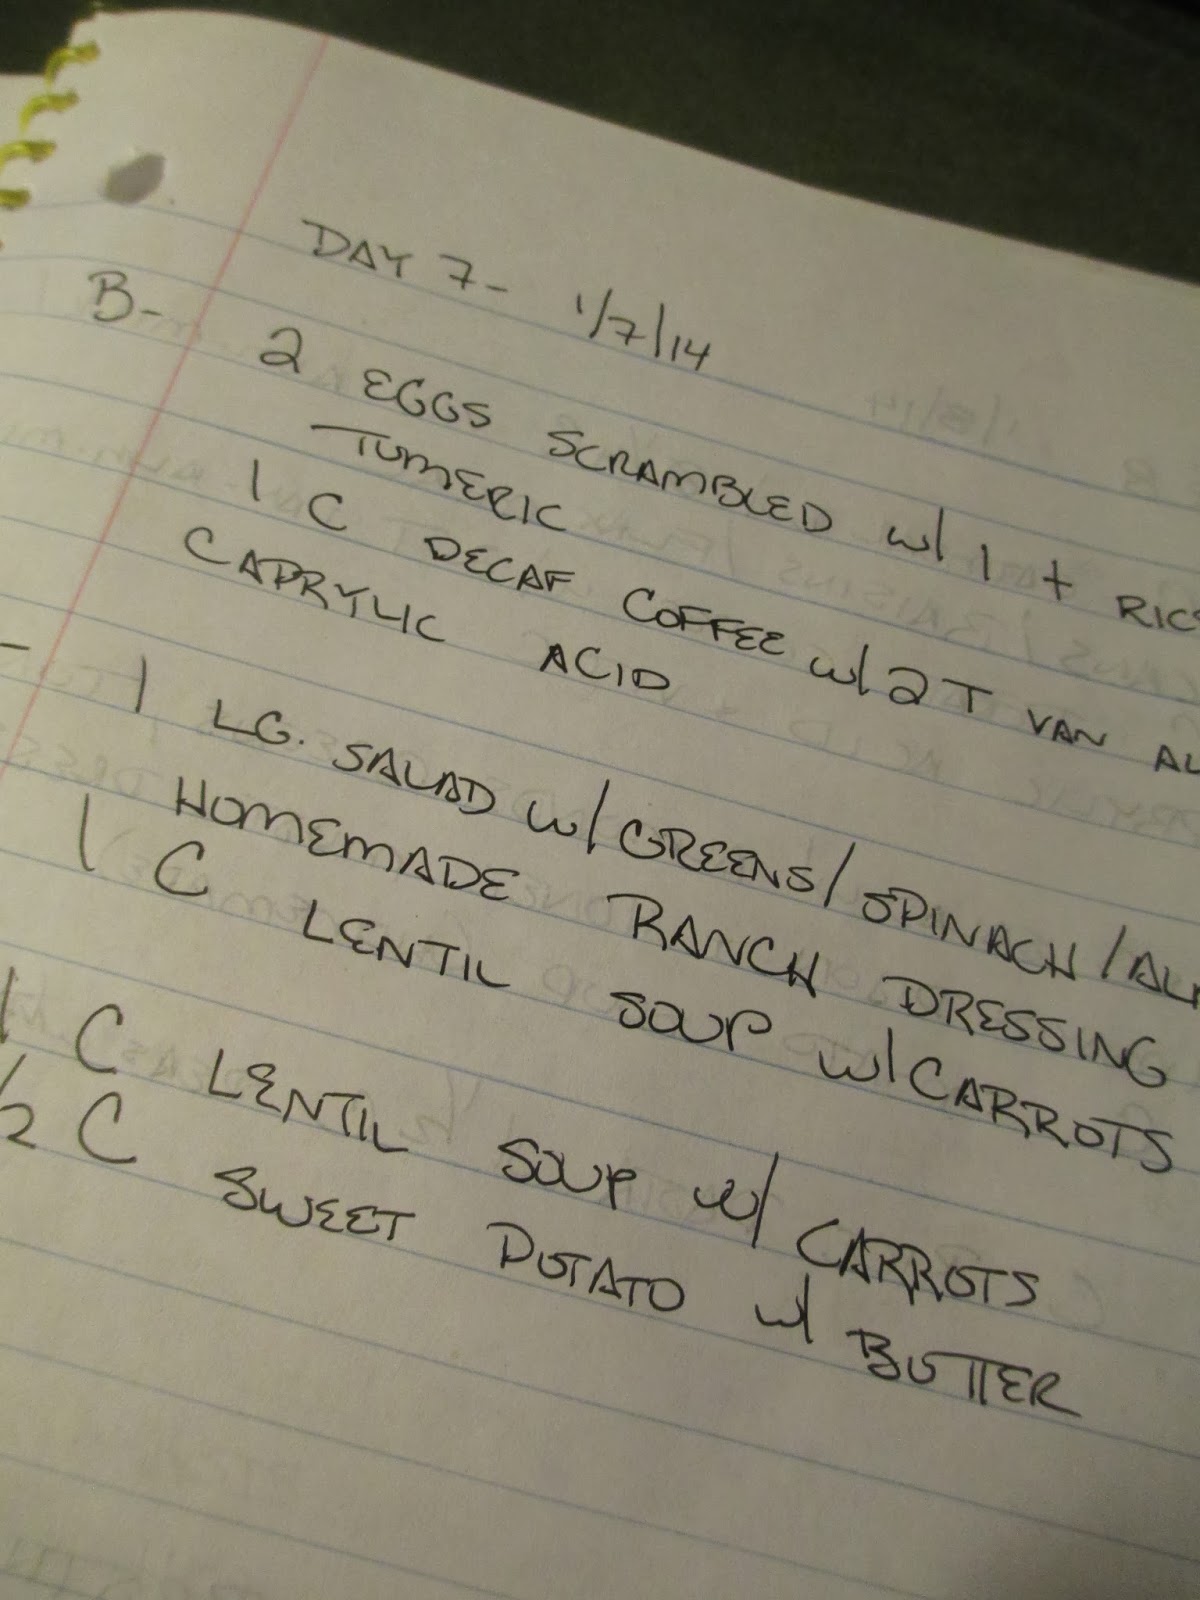 DAY 7- 1/7/14
B- 2 EGGS SCRAMBLED w/ 1 t
TUMERIC
1 C DECAF COFFEE w/ 2 T VAN
CAPRYLIC ACID
- 1 LG. SALAD w/ GREENS/SPINACH/
HOMEMADE RANCH DRESSING
1 C LENTIL SOUP w/ CARROTS
1 C LENTIL SOUP w/ CARROTS
1/2 C SWEET POTATO w/ BUTTER